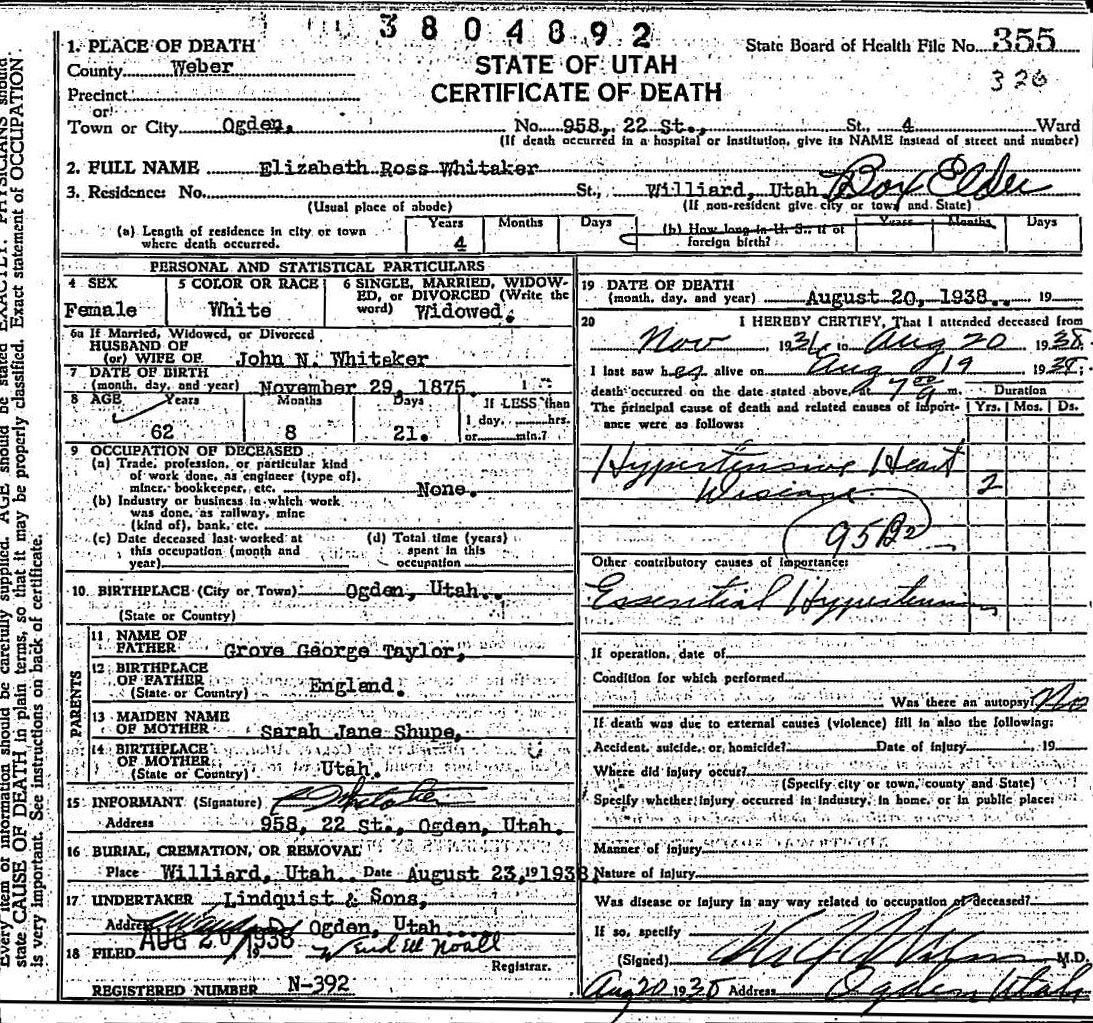 3804892
1. PLACE OF DEATH
State Board of Health File No. 355
County Weber
STATE OF UTAH
326
Precinct
CERTIFICATE OF DEATH
or
Town or City Ogden, No. 958, 22 St., St., 4 Ward
(If death occurred in a hospital or institution, give its NAME instead of street and number)
2. FULL NAME Elizabeth Ross Whitaker
3. Residence: No. St., Williard, Utah Box Elder
(Usual place of abode) (If non-resident give city or town and State)
(a) Length of residence in city or town where death occurred. Years 4 Months Days
(b) How long in U. S., if of foreign birth? Years Months Days
PERSONAL AND STATISTICAL PARTICULARS
4 SEX Female
5 COLOR OR RACE White
6 SINGLE, MARRIED, WIDOWED, or DIVORCED (Write the word) Widowed.
6a If Married, Widowed, or Divorced
HUSBAND OF
(or) WIFE OF John N. Whitaker
7 DATE OF BIRTH
(month, day, and year) November 29, 1875.
8 AGE Years 62 Months 8 Days 21.
If LESS than
1 day, hrs.
or min.?
9 OCCUPATION OF DECEASED
(a) Trade, profession, or particular kind
of work done, as engineer (type of),
miner, bookkeeper, etc. None.
(b) Industry or business in which work
was done, as railway, mine
(kind of), bank, etc.
(c) Date deceased last worked at
this occupation (month and
year)
(d) Total time (years)
spent in this
occupation
10. BIRTHPLACE (City or Town) Ogden, Utah.
(State or Country)
PARENTS
11 NAME OF
FATHER Grove George Taylor,
12 BIRTHPLACE
OF FATHER England.
(State or Country)
13 MAIDEN NAME
OF MOTHER Sarah Jane Shupe,
14 BIRTHPLACE
OF MOTHER Utah.
(State or Country)
15 INFORMANT (Signature)
Address 958, 22 St., Ogden, Utah.
16 BURIAL, CREMATION, OR REMOVAL
Place Williard, Utah. Date August 23, 1938.
17 UNDERTAKER Lindquist & Sons,
Address Ogden, Utah
AUG 20 1938
18 FILED 19 Noall
Registrar.
REGISTERED NUMBER N-392
19 DATE OF DEATH
(month, day, and year) August 20, 1938. 19
20 I HEREBY CERTIFY, That I attended deceased from
Nov 1936 to Aug 20 1938
I last saw her alive on Aug 19 1938;
death occurred on the date stated above, at 7 00 a m.
Duration
The principal cause of death and related causes of importance were as follows:
Yrs. Mos. Ds.
Hypertensive Heart
Disease 2
95B2
Other contributory causes of importance:
Essential Hypertension
If operation, date of
Condition for which performed
Was there an autopsy? No
If death was due to external causes (violence) fill in also the following:
Accident, suicide, or homicide? Date of injury , 19
Where did injury occur?
(Specify city or town, county and State)
Specify whether injury occurred in industry, in home, or in public place:
Manner of injury
Nature of injury
Was disease or injury in any way related to occupation of deceased?
If so, specify
(Signed) M.D.
Aug 20 1938 Address Ogden Utah
Every item of information should be carefully supplied. AGE should be stated EXACTLY. PHYSICIANS should
state CAUSE OF DEATH in plain terms, so that it may be properly classified. Exact statement of OCCUPATION
is very important. See instructions on back of certificate.